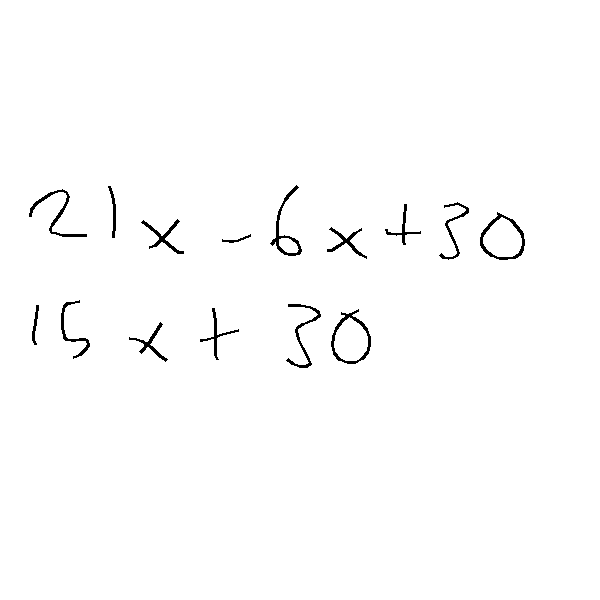 21x - 6x + 30
15x + 30